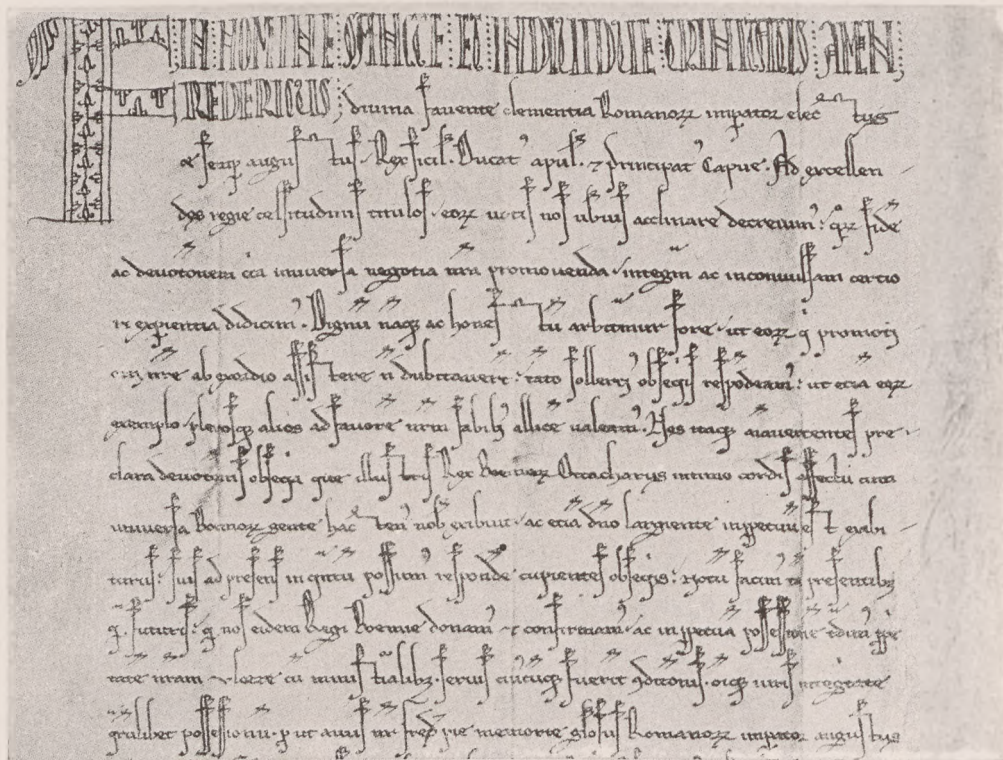 IN NOMINE SANCTE ET INDIVIDUE TRINITATIS AMEN
FREDERICUS divina favente clementia Romanorꝝ impator electus
& semp augustus. Rex sicil. Ducat' apul. ⁊ principat' Capue. Ad excellen
des regie celsitudinis titulos. eorꝝ nos acclinare decrevim'. qꝝ fidē
ac devotionem circa universa negotia nr̄a promovenda integrā ac inconvulsam certio
ri expientia didicim'. Dignū naqꝫ ac honestū arbitramur fore. ut eorꝝ q promoti
nr̄e ab exordio assistere n̄ dubitaverūt. tāto sollerti' obseqiis respōdeam'. ut etiā eorꝝ
exemplo plerosqꝫ alios ad favorē nr̄m allicē valeam'. Hēs itaqꝫ aiavertentes pre
clara devotōnis obseqia que illustris Rex Boemorꝝ Ottacharus intimo cordis affectu circa
universa Romanorꝝ gente hactenus nob exibuit. ac etiā dn̄o largiente inppetuū est exibi
turus. suis ad presens in qntū possum' respondē cupientes obseqis. Notū facim' tā presentibꝫ
q̄ futuris. q nos eidem Regi Boemie donam' ⁊ confirmam'. ac in ppetuā possessione
tate nr̄am cū ministialibꝫ. servis cuiuscūqꝫ fuerīt 9ditionis. oīqꝫ integritate
qrūlibet possessionū. p ut avus nr̄ fred pie memorie gl'osus Romanorꝝ impator augustus